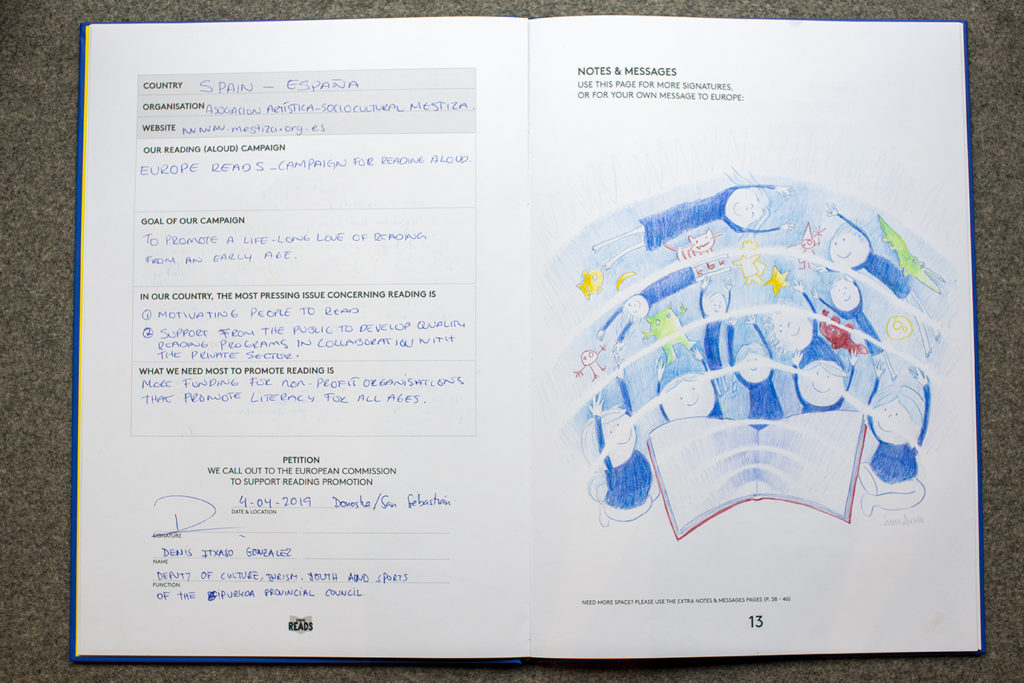 COUNTRY SPAIN – ESPAÑA
ORGANISATION ASOCIACION ARTÍSTICA-SOCIOCULTURAL MESTIZA.
WEBSITE www.mestiza.org.es
OUR READING (ALOUD) CAMPAIGN
EUROPE READS – CAMPAIGN FOR READING ALOUD.
GOAL OF OUR CAMPAIGN
TO PROMOTE A LIFE-LONG LOVE OF READING
FROM AN EARLY AGE.
IN OUR COUNTRY, THE MOST PRESSING ISSUE CONCERNING READING IS
① MOTIVATING PEOPLE TO READ
② SUPPORT FROM THE PUBLIC TO DEVELOP QUALITY
READING PROGRAMS IN COLLABORATION WITH
THE PRIVATE SECTOR.
WHAT WE NEED MOST TO PROMOTE READING IS
MORE FUNDING FOR NON-PROFIT ORGANISATIONS
THAT PROMOTE LITERACY FOR ALL AGES.
PETITION
WE CALL OUT TO THE EUROPEAN COMMISSION
TO SUPPORT READING PROMOTION
4-04-2019 Donostia/San Sebastián
DATE & LOCATION
SIGNATURE
DENIS ITXASO GONZALEZ
NAME
DEPUTY OF CULTURE, TURISM, YOUTH AND SPORTS
FUNCTION
OF THE GIPUZKOA PROVINCIAL COUNCIL.
READS
NOTES & MESSAGES
USE THIS PAGE FOR MORE SIGNATURES,
OR FOR YOUR OWN MESSAGE TO EUROPE:
NEED MORE SPACE? PLEASE USE THE EXTRA NOTES & MESSAGES PAGES (P. 38 - 46)
13